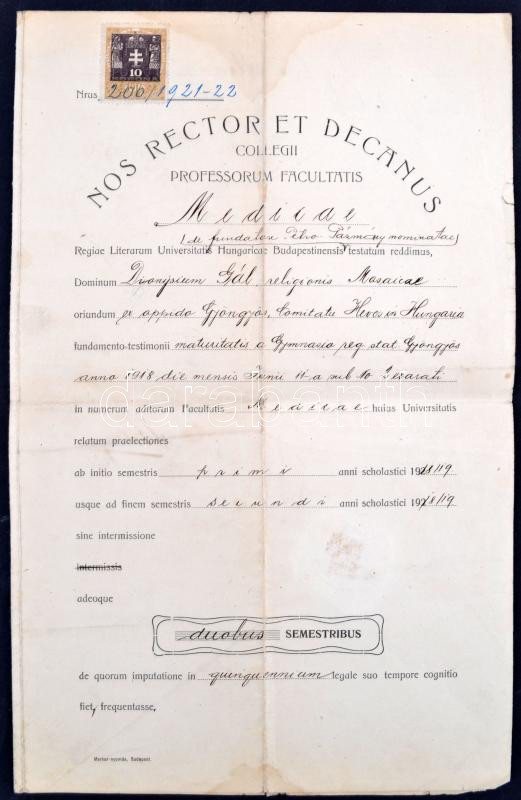 10
KORONA
Nrus 206/1921-22
NOS RECTOR ET DECANUS
COLLEGII
PROFESSORUM FACULTATIS
Medicae
(de fundatore Petro Pázmány nominatae)
Regiae Literarum Universitatis Hungaricae Budapestinensis testatum reddimus,
Dominum Dionysium Gál, religionis Mosaicae
oriundum ex oppido Gyöngyös, Comitatu Heves in Hungaria
fundamento testimonii maturitatis a Gymnasio reg. stat. Gyöngyös
anno 1918 die mensis Junii 14 a sub No
in numerum auditorum Facultatis Medicae huius Universitatis
relatum praelectiones
ab initio semestris primi anni scholastici 1918/19
usque ad finem semestris secundi anni scholastici 1918/19
sine intermissione
intermissis
adeoque
duobus SEMESTRIBUS
de quorum imputatione in quinquennium legale suo tempore cognitio
fiet, frequentasse,
Markur-nyomda, Budapest.
darabanth